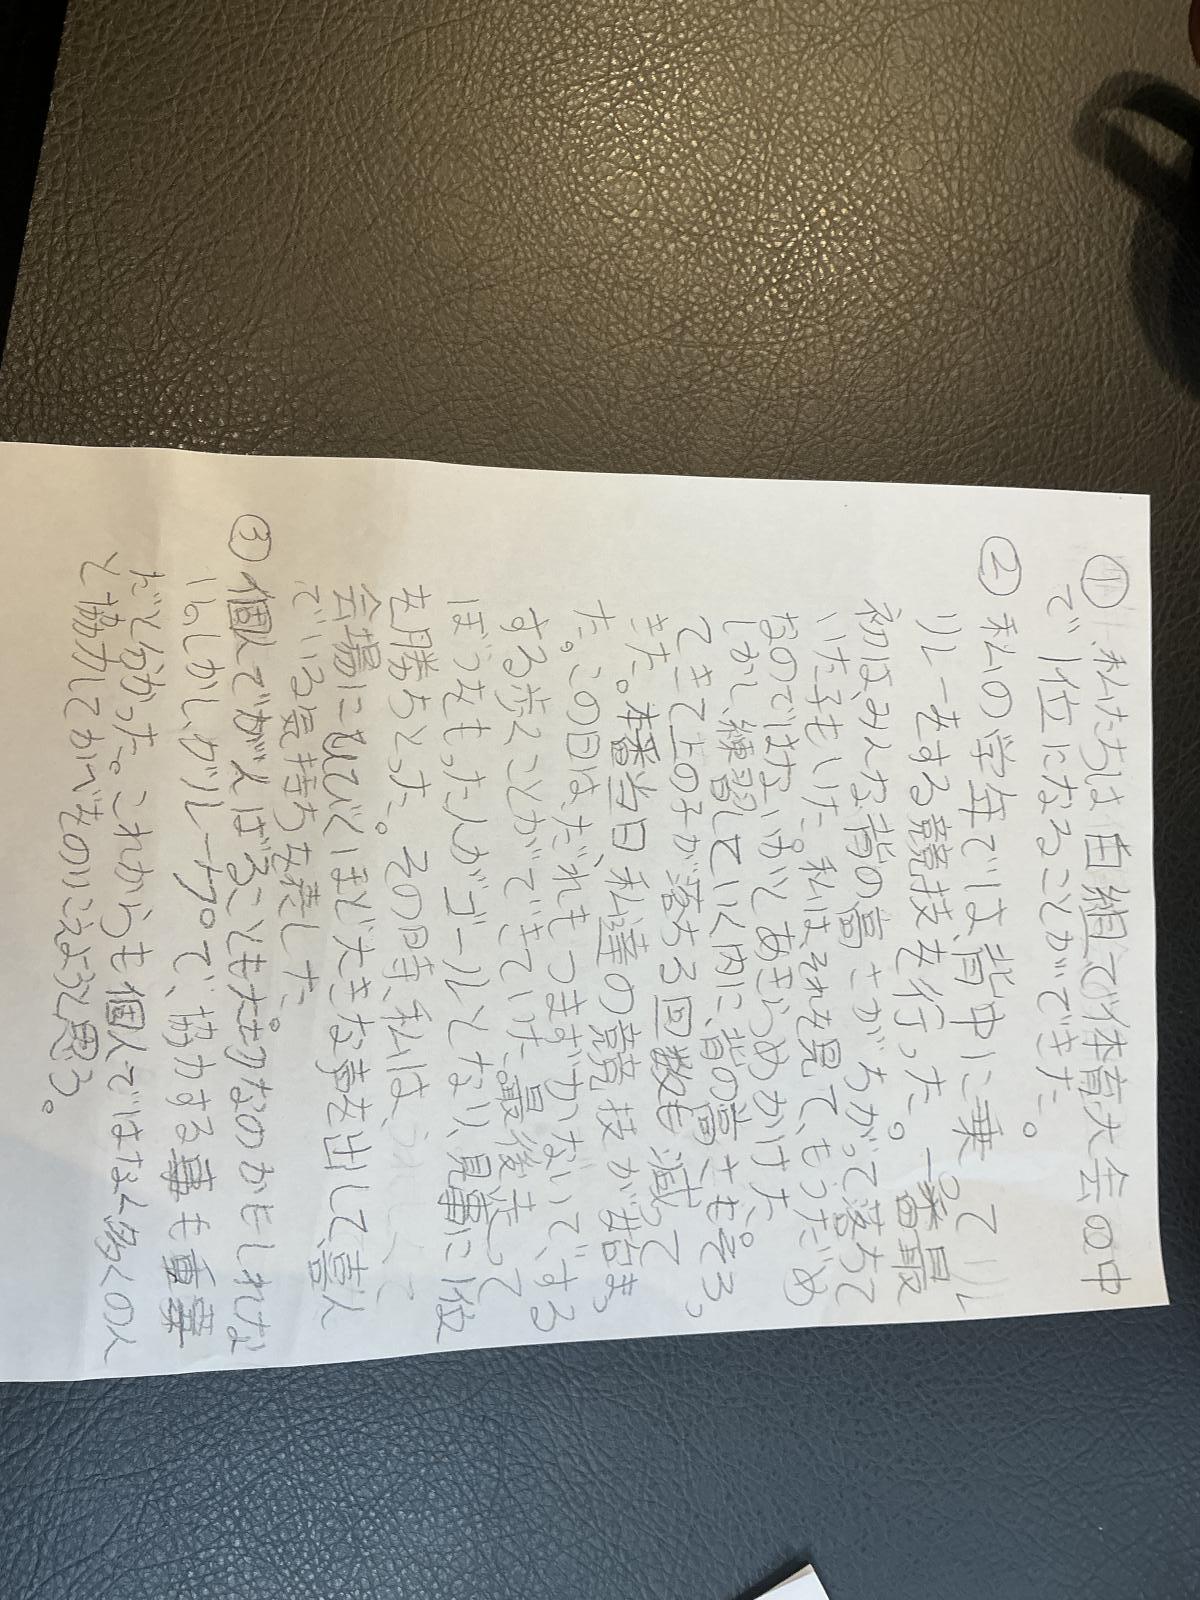 ①私たちは白組で体育大会の中
で1位になることができた。
②私の学年では、背中に乗って
リレーをする競技を行った。一番最
初はみんな背の高さがちがって落ちて
いた子もいた。私はそれを見て、もうだめ
なのではないかとあきらめかけた。
しかし、練習していく内に、背の高さもそろっ
てきて上の子が落ちる回数も減って
きた。本番当日、私達の競技が始まっ
た。この日は、だれもつまずかないで、する
する歩くことができていた。最後、走って
ぼうをもった人がゴールとなり、見事に1位
を勝ちとった。その時、私は、
会場にもひびくほど大きな声を出して、喜ん
でいる気持ちを表した。
③個人でがんばることも大切なのかもしれな
い。しかし、グループで、協力する事も重要
だと分かった。これからも個人ではなく多くの人
と協力してがんばるのによようと思う。